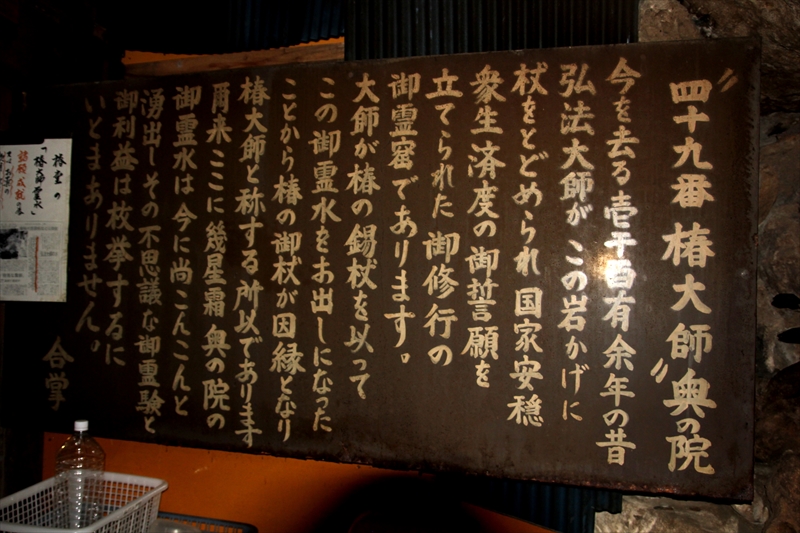 四十九番〝椿大師〟奥の院
今を去る壱千百有余年の昔
弘法大師が この岩かげに
杖をとどめられ 国家安穏
衆生済度の御誓願を
立てられた 御修行の
御霊窟であります。
大師が椿の錫杖を以って
この御霊水をお出しになった
ことから 椿の御杖が因縁となり
椿大師と称する所以であります
爾来ここに幾星霜 奥の院の
御霊水は今に尚こんこんと
湧出しその不思議な御霊験と
御利益は枚挙するに
いとまありません。
合掌
椿堂の
「椿大師霊水」